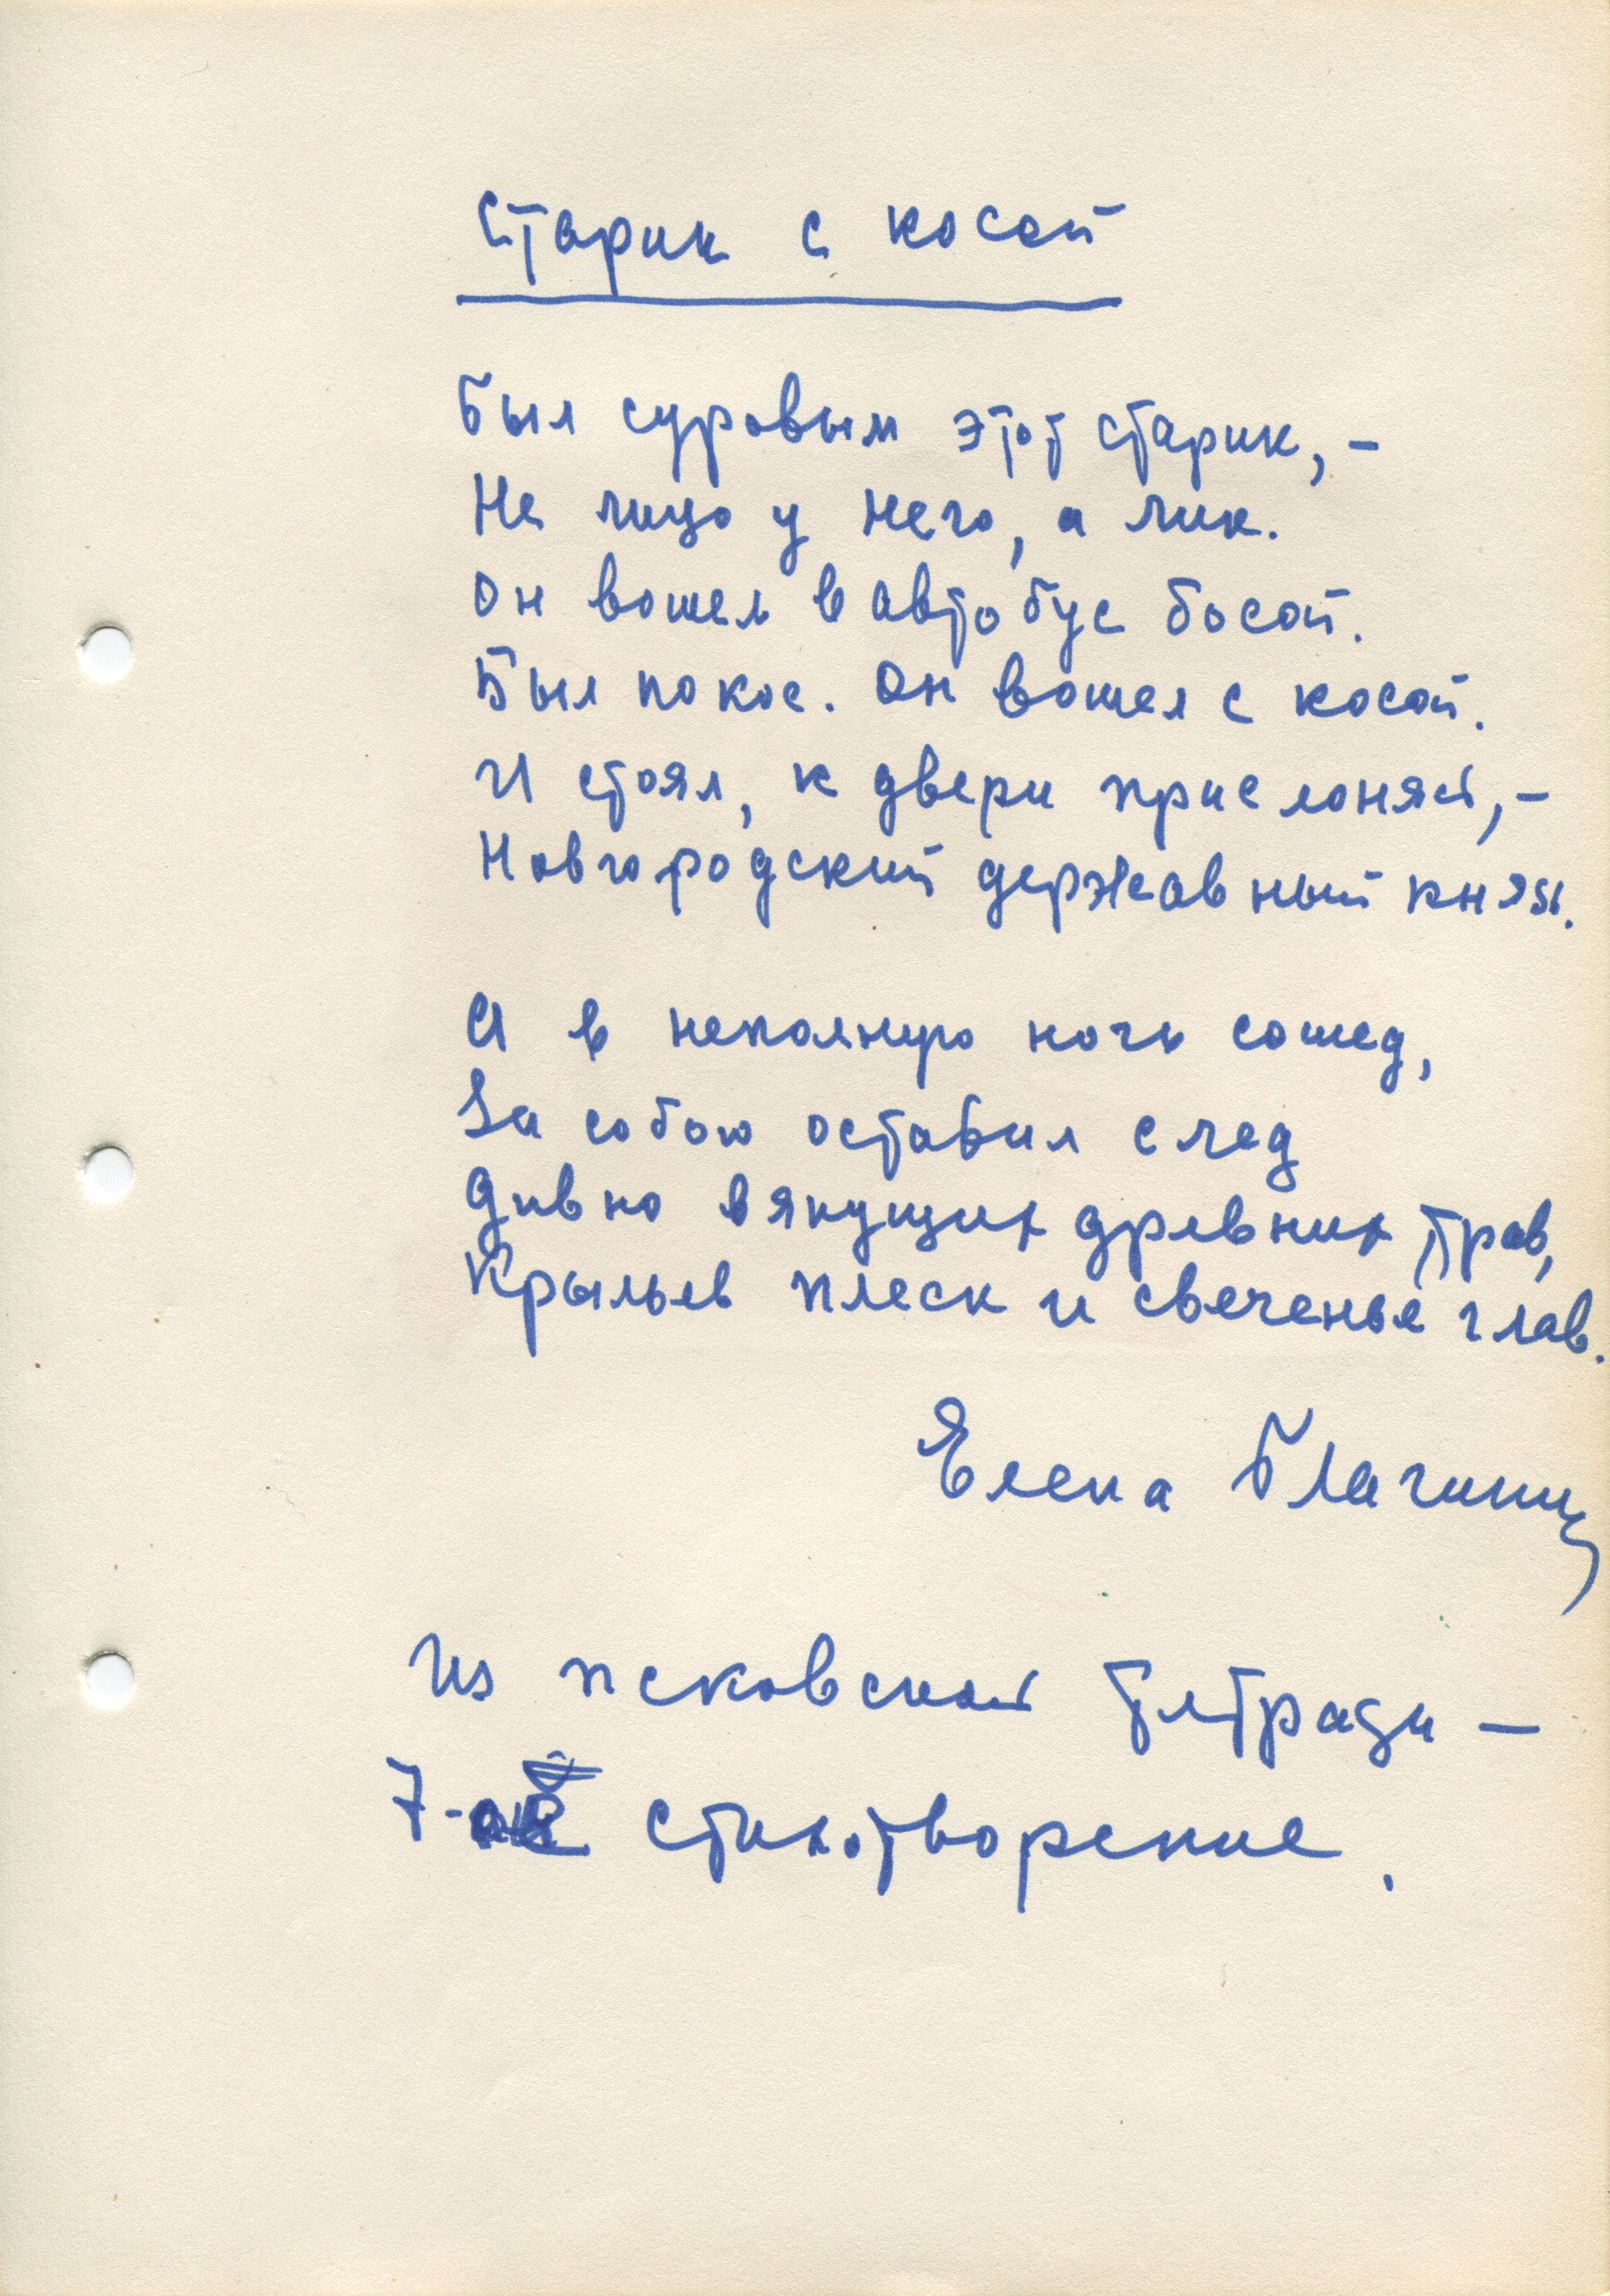 Старик с косой
Был суровым этот старик, –
Не лицо у него, а лик.
Он вошел в автобус босой.
Был покос. Он вошел с косой.
И стоял, к двери прислонясь, –
Новгородский державный князь.
И в неполную ночь сошед,
За собою оставил след
Дивно вянущих древних трав,
Крыльев плеск и свеченье глав.
Елена Благинина
Из псковской тетради –
7-ое стихотворение.